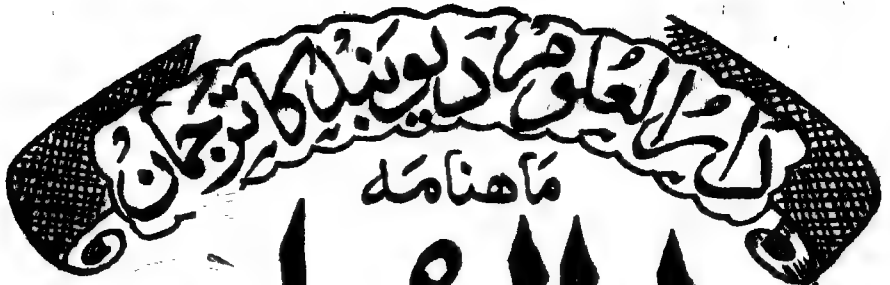 دارالعلوم دیوبند کا ترجمان
ماهنامه